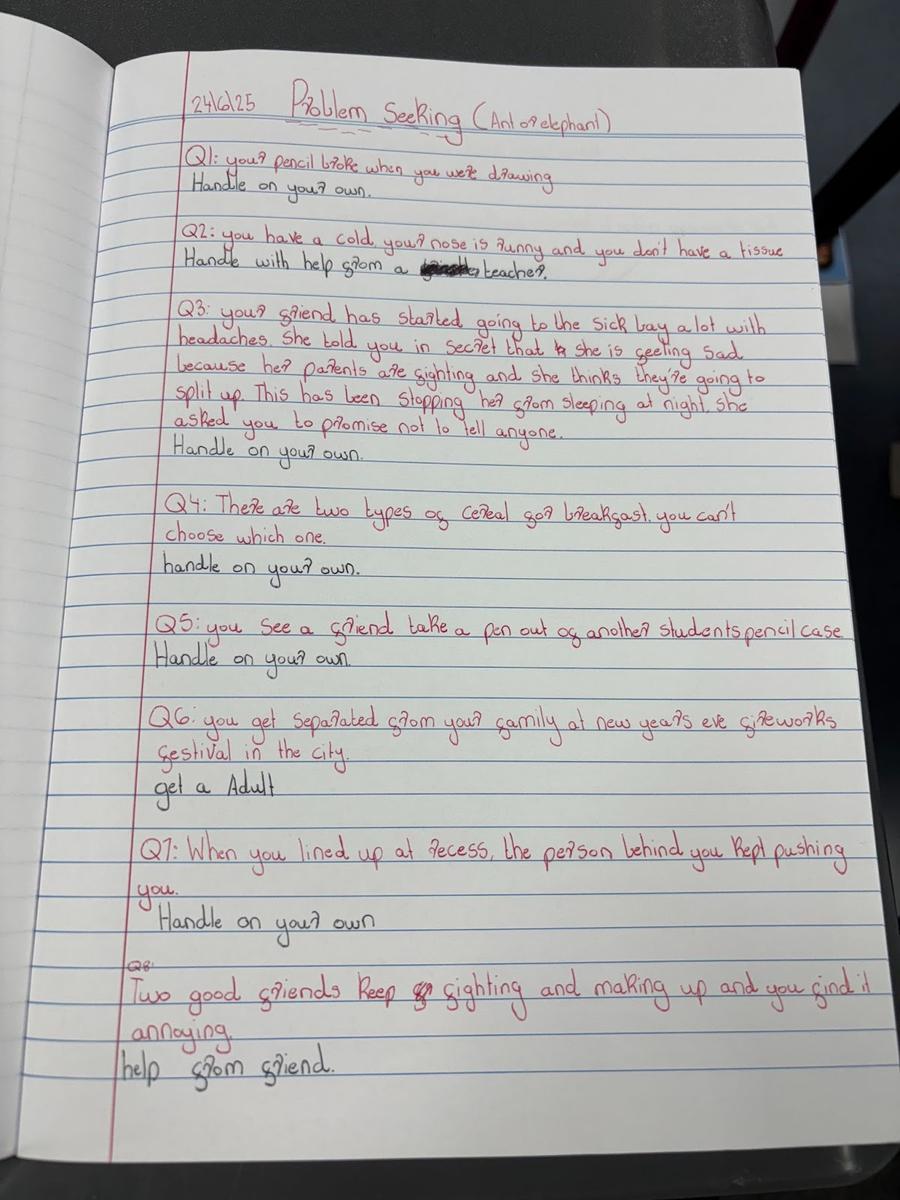 24/6/25 Problem Seeking (Ant or elephant)
Q1: your pencil broke when you were drawing
Handle on your own.
Q2: you have a cold, your nose is runny and you don't have a tissue
Handle with help from a teacher.
Q3: your friend has started going to the sick bay a lot with
headaches. She told you in secret that she is feeling sad
because her parents are fighting and she thinks they're going to
split up. This has been stopping her from sleeping at night. she
asked you to promise not to tell anyone.
Handle on your own.
Q4: There are two types of cereal for breakfast. you can't
choose which one.
handle on your own.
Q5: you see a friend take a pen out of another students pencil case
Handle on your own.
Q6: you get separated from your family at new years eve fireworks
festival in the city.
get a Adult
Q7: When you lined up at recess, the person behind you kept pushing
you.
Handle on your own
Q8:
Two good friends keep fighting and making up and you find it
annoying.
help from friend.